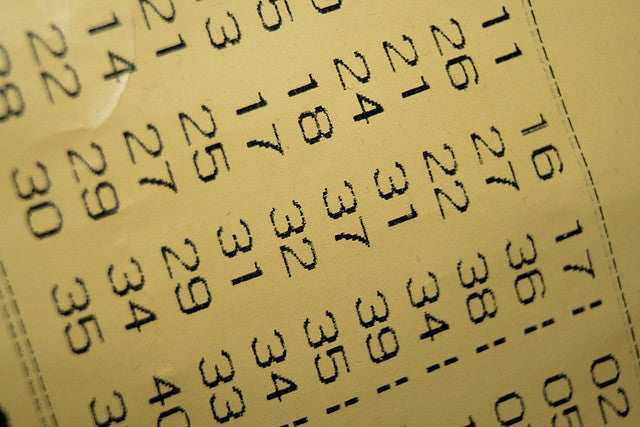 11 16 17 02
26 27 36 05
21 22 38 0
24 31 34
18 37 39
3 17 32 35
21 25 31 34
14 27 29 33
22 29 34 40
28 30 35 3